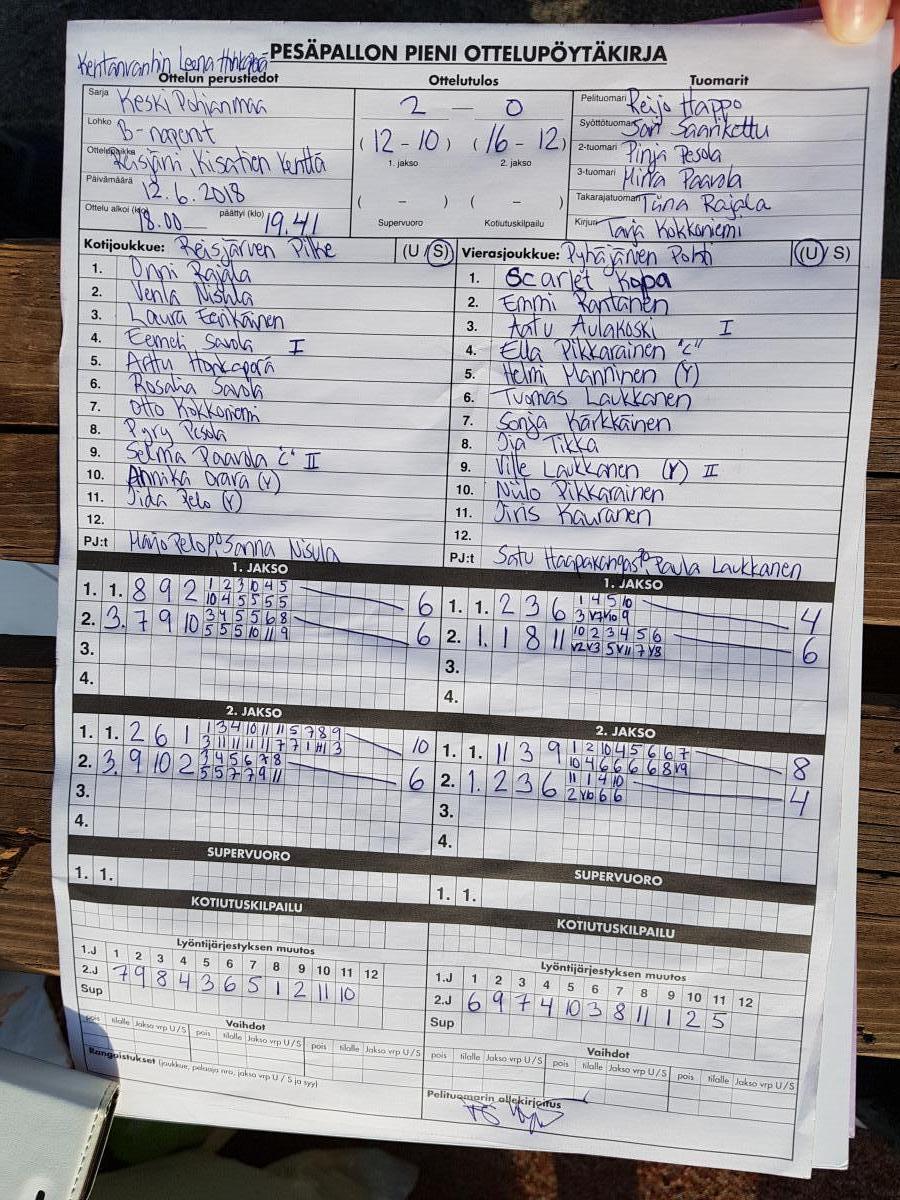 Kentänvanhin Leena Honkaperä
PESÄPALLON PIENI OTTELUPÖYTÄKIRJA
Ottelun perustiedot Ottelutulos Tuomarit
Sarja Keski Pohjanmaa
Lohko B-naperot
Ottelupaikka Reisjärvi, Kisatien kenttä
Päivämäärä 12.6.2018
Ottelu alkoi (klo) 18.00 päättyi (klo) 19.41
2 – 0
(12-10) (16-12)
1. jakso 2. jakso
( - ) ( - )
Supervuoro Kotiutuskilpailu
Pelituomari Reijo Happo
Syöttötuomari Sari Saarikettu
2-tuomari Pinja Pesola
3-tuomari Mirva Paavola
Takarajatuomari Tiina Rajala
Kirjuri Tarja Kokkoniemi
Kotijoukkue: Reisjärven Pilke (U / S)
1. Onni Rajala
2. Venla Nisula
3. Laura Eenkäinen
4. Eemeli Savola I
5. Arttu Honkaperä
6. Rosaha Savola
7. Otto Kokkoniemi
8. Pyry Pesola
9. Selma Paavola "C" II
10. Annika Orava (Y)
11. Iida Pelo (Y)
12.
PJ:t Marjo Pelo Sanna Nisula
Vierasjoukkue: Pyhäjärven Pohti (U / S)
1. Scarlet Kopa
2. Emmi Rantanen
3. Aatu Aulakoski I
4. Ella Pikkarainen "C"
5. Helmi Manninen (Y)
6. Tuomas Laukkanen
7. Sonja Kärkkäinen
8. Iia Tikka
9. Ville Laukkanen (Y) II
10. Niilo Pikkarainen
11. Iiris Kauranen
12.
PJ:t Satu Haapakangas Paula Laukkanen
1. JAKSO
1. 1. 8 9 2 1 2 3 10 4 5 6
10 4 5 5 5 5
2. 3. 7 9 10 3 4 5 5 6 8 6
5 5 5 10 11 9
3.
4.
1. JAKSO
1. 1. 2 3 6 1 4 5 10 4
3 V7 V10 9
2. 1. 1 8 11 10 2 3 4 5 6 6
V2 V3 5 V11 7 V8
3.
4.
2. JAKSO
1. 1. 2 6 1 1 3 4 10 11 11 5 7 8 9 10
3 11 11 11 11 7 7 1 3
2. 3. 9 10 2 3 4 5 6 7 8 6
5 5 7 7 9 11
3.
4.
2. JAKSO
1. 1. 11 3 9 1 2 10 4 5 6 6 7 8
10 4 6 6 6 6 8 V9
2. 1. 2 3 6 11 1 4 10 4
2 V10 6 6
3.
4.
SUPERVUORO
1. 1.
SUPERVUORO
1. 1.
KOTIUTUSKILPAILU
KOTIUTUSKILPAILU
Lyöntijärjestyksen muutos
1.J 1 2 3 4 5 6 7 8 9 10 11 12
2.J 7 9 8 4 3 6 5 1 2 11 10
Sup
Lyöntijärjestyksen muutos
1.J 1 2 3 4 5 6 7 8 9 10 11 12
2.J 6 9 7 4 10 3 8 11 1 2 5
Sup
Vaihdot
pois tilalle Jakso vrp U / S pois tilalle Jakso vrp U / S pois tilalle Jakso vrp U / S
Rangaistukset (joukkue, pelaaja nro, jakso vrp U / S ja syy)
Vaihdot
pois tilalle Jakso vrp U / S pois tilalle Jakso vrp U / S pois tilalle Jakso vrp U / S
Pelituomarin allekirjoitus